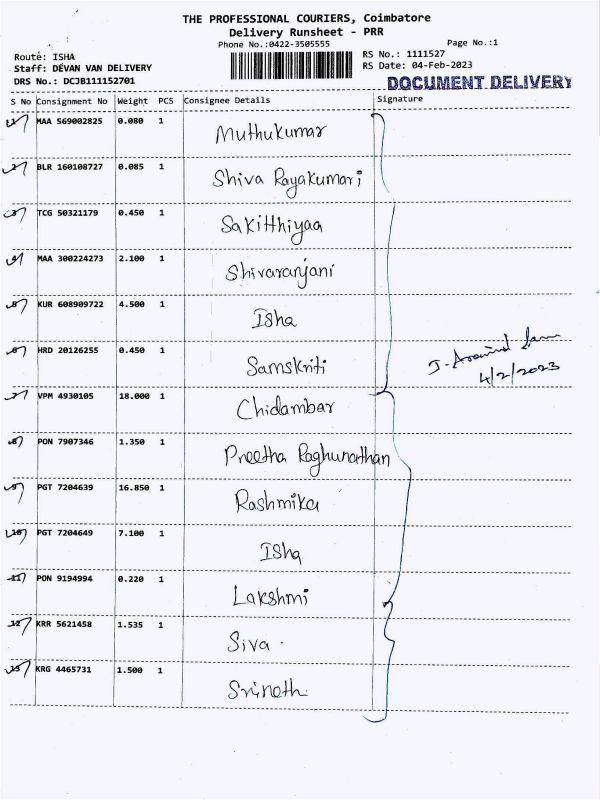 THE PROFESSIONAL COURIERS, Coimbatore
Delivery Runsheet - PRR
Phone No.:0422-3505555
Page No.:1
Route: ISHA
RS No.: 1111527
Staff: DEVAN VAN DELIVERY
RS Date: 04-Feb-2023
DRS No.: DCJB111152701
DOCUMENT DELIVERY
S No Consignment No Weight PCS Consignee Details Signature
1 MAA 569002825 0.080 1 Muthukumar
2 BLR 160108727 0.085 1 Shiva Rayakumari
3 TCG 50321179 0.450 1 Sakitthiyaa
4 MAA 300224273 2.100 1 Shivaranjani
5 KUR 608909722 4.500 1 Isha
6 HRD 20126255 0.450 1 Samskriti
J. Aravind
4/2/2023
7 VPM 4930105 18.000 1 Chidambar
8 PON 7907346 1.350 1 Preetha Raghunathan
9 PGT 7204639 16.850 1 Rashmika
10 PGT 7204649 7.100 1 Isha
11 PON 9194994 0.220 1 Lakshmi
12 KRR 5621458 1.535 1 Siva
13 KRG 4465731 1.500 1 Srineth